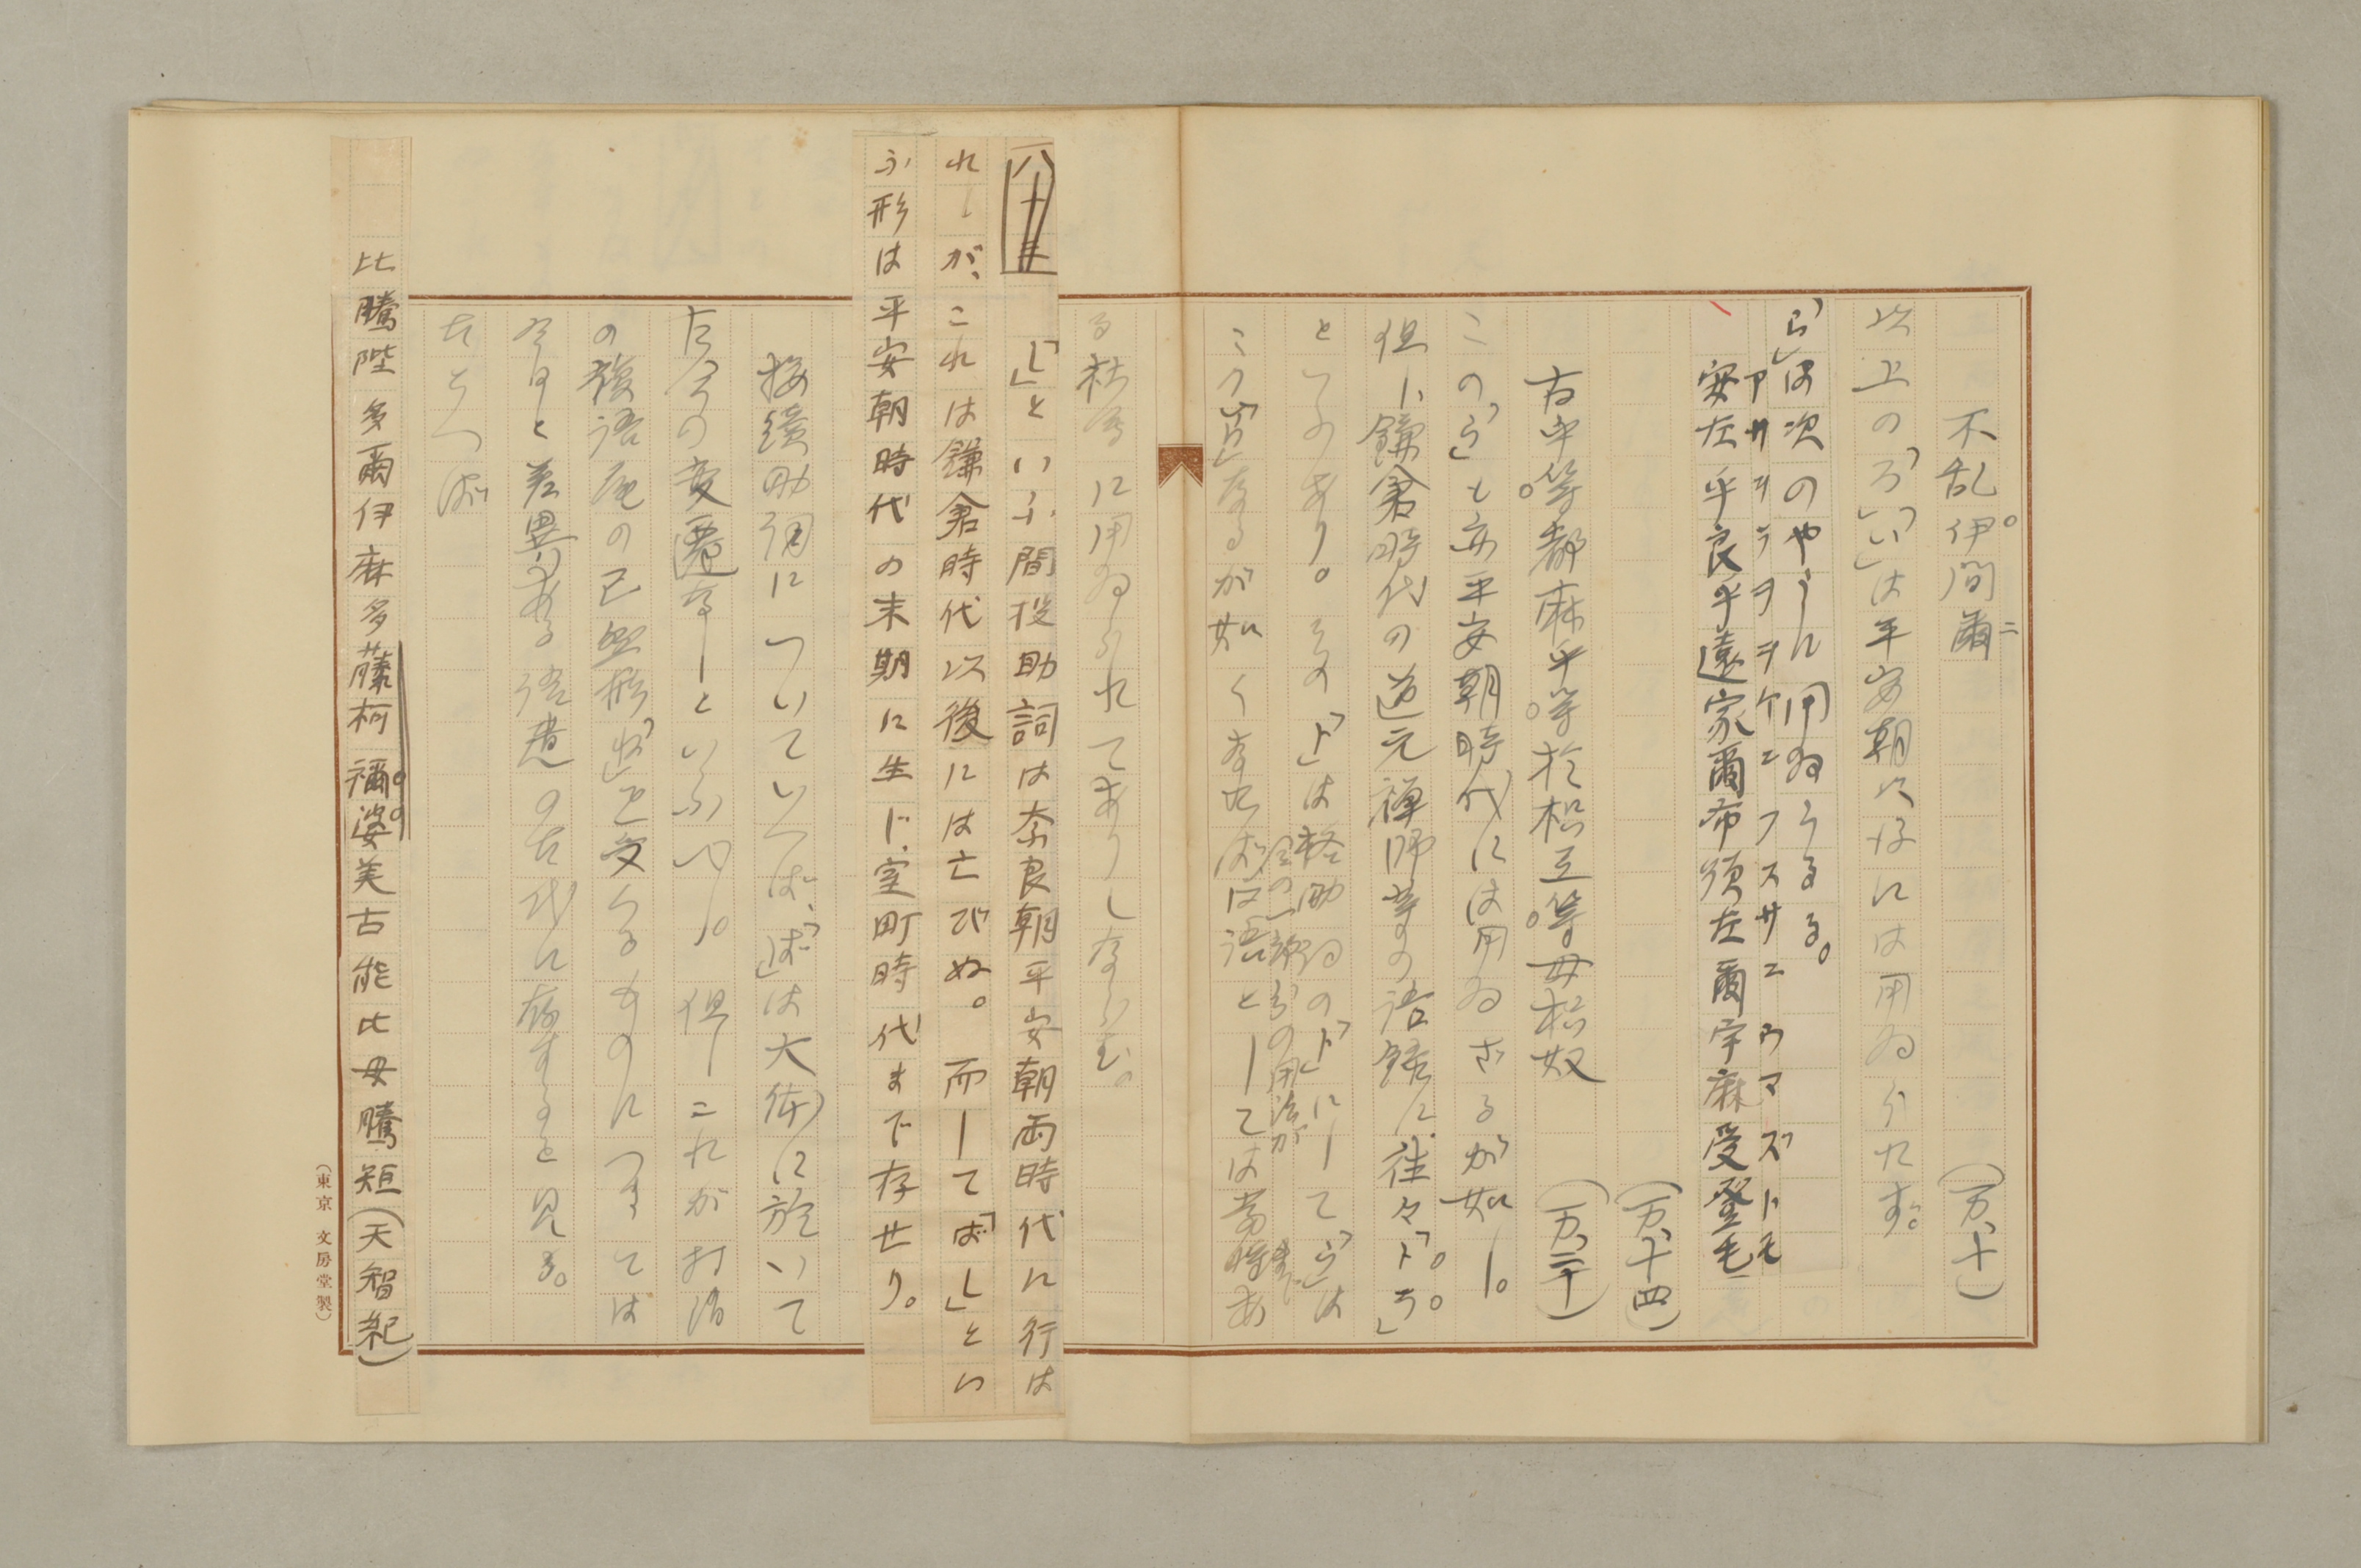 不乱伊間爾ニ（万、十）
以上の「ろ」「い」は平安朝以後には用ゐられず。
「ら」は次のやうに用ゐらるる。
アサヲラヲヲケニフスサニウマズトモ
安左乎良乎遠家爾布須左爾宇麻受登毛
（万、十四）
古乎等都麻乎等於枳弖等母枳奴（万、二十）
この「ら」も亦平安朝時代には用ゐざるが如し。
但し、鎌倉時代の道元禅師等の語録に往々「ドラ」
といへるあり。その「ド」は格助詞の「ド」にして「ら」は
この「ら」なるが如くなれば口語としては当時まであ
る社会に用ゐられてありしならむ。
「し」といふ間投助詞は奈良朝平安朝両時代に行は
れしが、これは鎌倉時代以後には亡びぬ。而して「ばし」とい
ふ形は平安朝時代の末期に生じ、室町時代まで存せり。
接続助詞についていへば、「ば」は大体に於いて
古今の変遷なしといふべし。但しこれが打消
の複語尾の已然形「ね」を受くるものにつきては
今日と差異ある語遣の古代に存するを見る。
たとへば
比騰陛多爾伊麻多藤柯禰婆美古能比母騰矩（天智紀）
（東京 文房堂製）